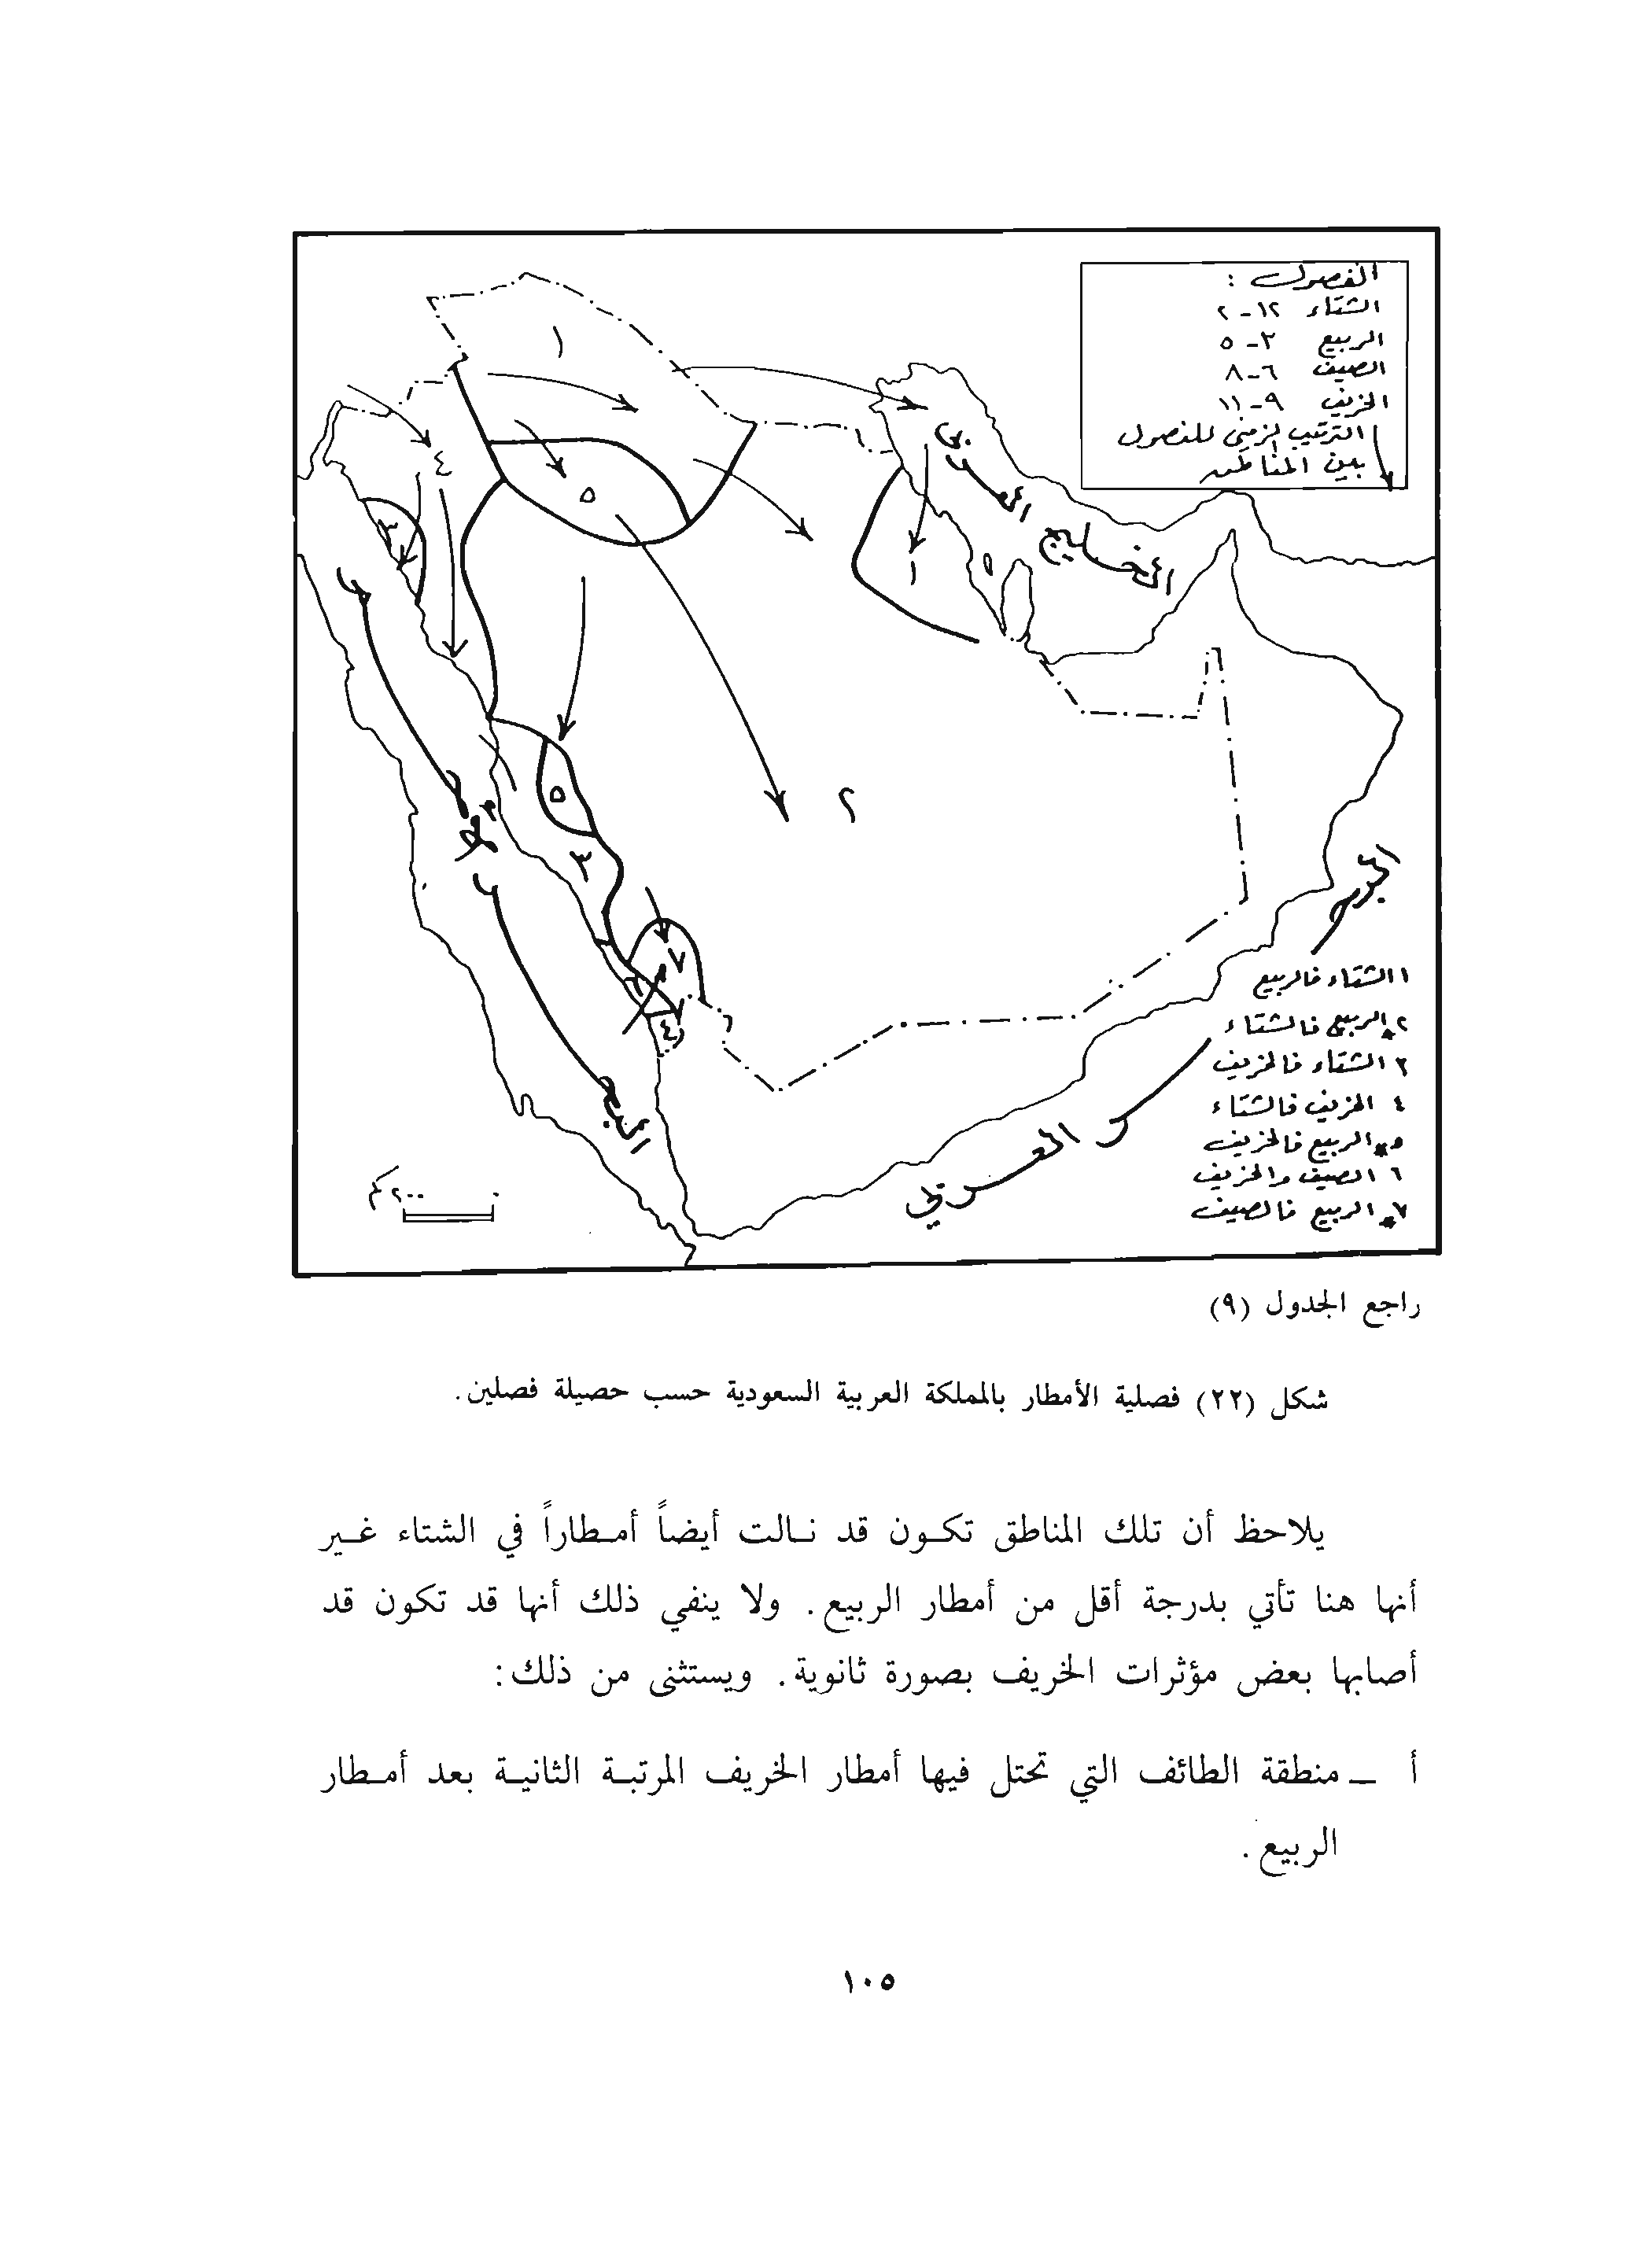 الفصول :
الشتاء ١٢ - ٢
الربيع ٣ - ٥
الصيف ٦ - ٨
الخريف ٩ - ١١
الترتيب الزمني للفصول
بين المناطق
١
٤
٥
٣
الخليج العربي
١
٢
٥
٣
٧
٦
٤
البحر الأحمر
البحر العربي
١ الشتاء فالربيع
٢* الربيع فالشتاء
٣ الشتاء فالخريف
٤ الخريف فالشتاء
٥* الربيع فالخريف
٦ الصيف والخريف
٧* الربيع فالصيف
٠ ٢٠٠ كم
راجع الجدول (٩)
شكل (٢٢) فصلية الأمطار بالمملكة العربية السعودية حسب حصيلة فصلين.
يلاحظ أن تلك المناطق تكون قد نالت أيضاً أمطاراً في الشتاء غير
أنها هنا تأتي بدرجة أقل من أمطار الربيع. ولا ينفي ذلك أنها قد تكون قد
أصابها بعض مؤثرات الخريف بصورة ثانوية. ويستثنى من ذلك:
أ – منطقة الطائف التي تحتل فيها أمطار الخريف المرتبة الثانية بعد أمطار
الربيع.
١٠٥